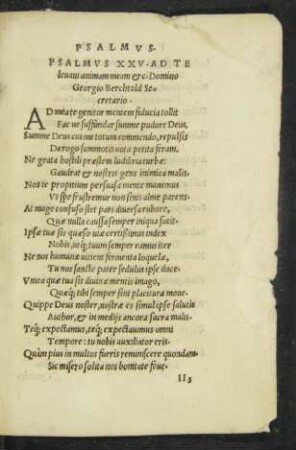 PSALMVS.
PSALMVS XXV. AD TE
leuaui animam meam &c. Domino
Georgio Berchtold Se-
cretario.
AD mea te genitor mentem fiducia tollit
Fac ne suffundar summe pudore Deus,
Summe Deus cui me totum commendo, repulsis
Da rogo summotis uota petita feram.
Ne grata hostili præstem ludibria turbæ:
Gaudeat & nostris gens inimica malis.
Nos te propitium persuasa mente manemus
Vt spe frustremur non sinis alme parens.
At mage confuso stet pars diuersa rubore,
Quæ nulla caussa semper iniqua facit.
Ipse tuæ sis quæso uiæ certissimus index
Nobis, in qua tuum semper eamus iter
Ne nos humanæ uisent fermenta loquelæ,
Tu nos sancte pater sedulus ipse doce.
Vnica quæ tua sit diuinæ mentis imago,
Quæq; tibi semper sint placitura moue.
Quippe Deus noster, nostræ es simul ipse salutis
Author, & in medijs ancora sacra malis.
Teq; expectamus, teq; expectauimus omni
Tempore: tu nobis auxiliator eris.
Quàm pius in multos fueris reminiscere quondam.
Sic misero solita nos bonitate foue.
II 3